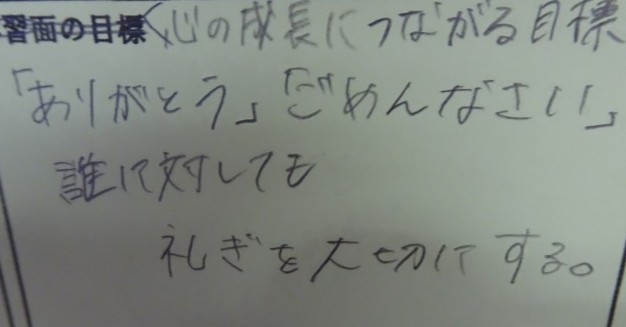 習面の目標〈心の成長につながる目標
「ありがとう」「ごめんなさい」
誰に対しても
礼ぎを大切にする。